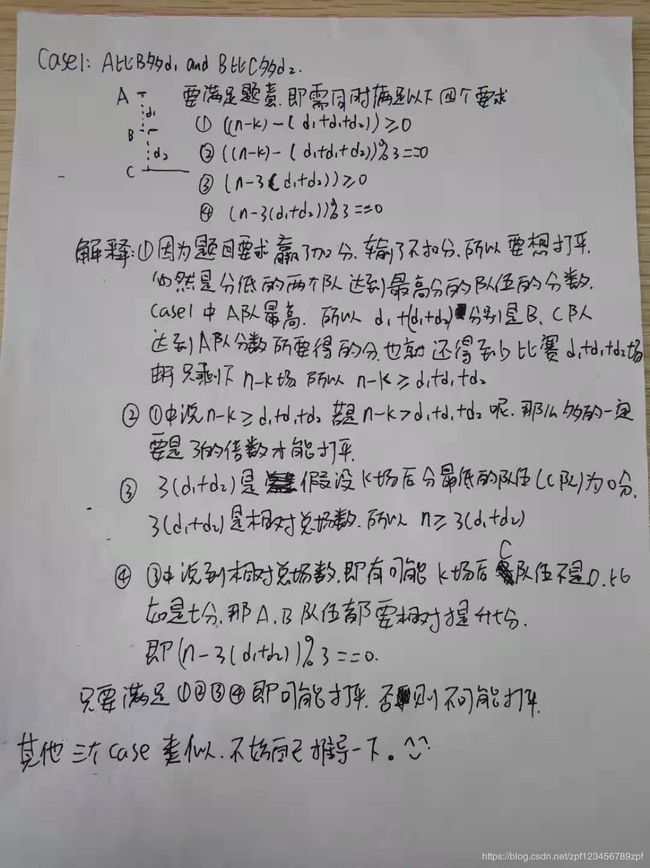 Case1: A比B多d1 and B比C多d2.
A
d1
B
d2
C
要满足题意,即需同时满足以下四个要求
① ((n-k)-(d1+d1+d2))≥0
② ((n-k)-(d1+d1+d2))%3==0
③ (n-3(d1+d2))≥0
④ (n-3(d1+d2))%3==0
解释:①因为题目要求赢了加分,输了不扣分,所以要想打平,
必然是分低的两个队达到最高分的队伍的分数.
Case1中A队最高.所以d1+(d1+d2)分别是B、C队
达到A队分数所要得的分,也就还得至少比赛d1+d1+d2场
只剩下n-k场 所以n-k≥d1+d1+d2
② ①中说n-k≥d1+d1+d2 若是n-k>d1+d1+d2呢.那么多的一定
要是3的倍数才能打平.
③ 3(d1+d2)是假设k场后分最低的队伍(C队)为0分,
3(d1+d2)是相对总场数.所以n≥3(d1+d2)
④ ③中说到相对总场数.即有可能k场后C队伍不是0.比
如是t分.那A、B队伍都要相对提升t分.
即(n-3(d1+d2))%3==0.
只要满足①②③④即可能打平.否则不可能打平.
其他三个case类似.不妨自己推导一下。^^
https://blog.csdn.net/zpf123456789zpf